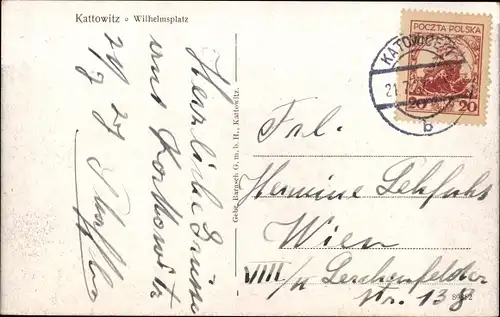 Kattowitz ∘ Wilhelmsplatz
Herzliche Grüsse
aus Kattowitz
21/7 27
Gebr. Barasch G. m. b. H., Kattowitz.
POCZTA POLSKA
20
KATOWICE
21.7
20
b
Frl.
Hermine
Wien
VIII/ Lerchenfelder
Str. 138